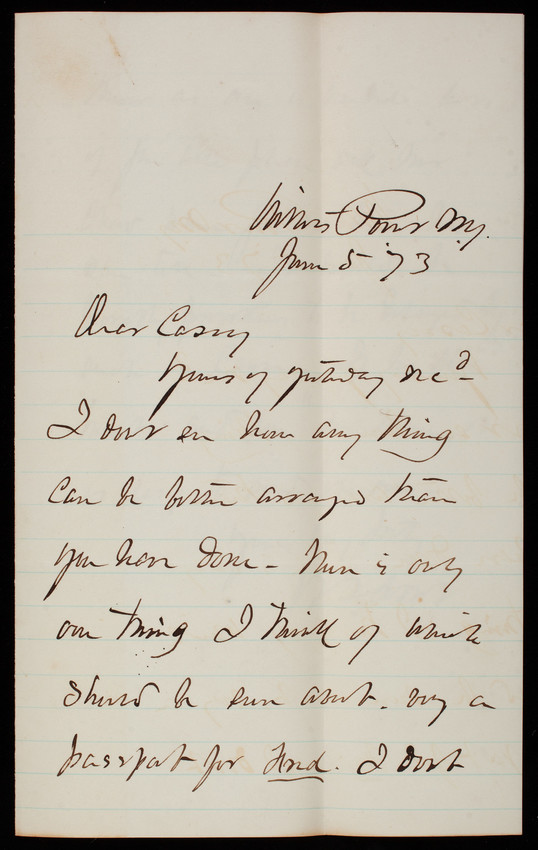 Willets Point N.Y.
June 5 '73
Dear Casey
Yours of yesterday recd -
I dont see how any thing
can be better arranged than
you have done - There is only
one thing I think of which
should be seen about. viz a
passport for Fred. I dont